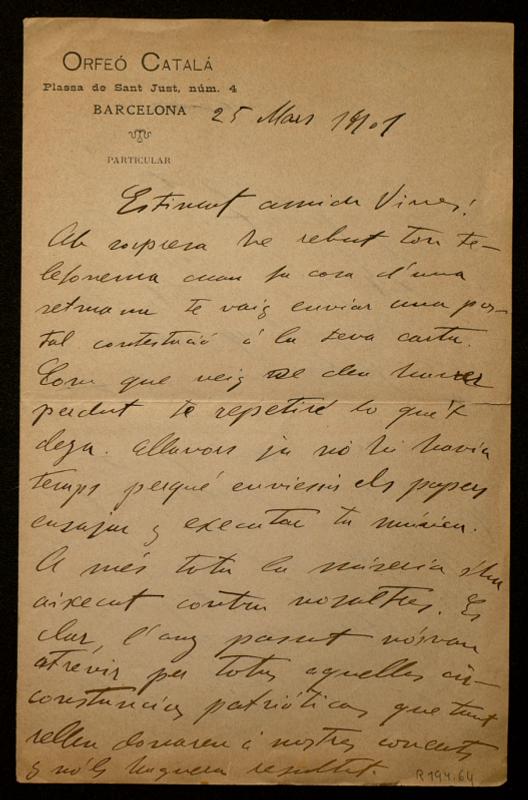 ORFEÓ CATALÁ
Plassa de Sant Just, núm. 4
BARCELONA
25 Mars 1901
PARTICULAR
Estimat amich Vives!
Ab sorpresa he rebut ton te-
lefonema cuan fa cosa d'una
setmana te vaig enviar una pos-
tal contestació á la teva carta.
Com que veig se deu haver
perdut te repetiré lo que't
deya. Allavors ja no hi havia
temps perqué enviessis els papers
ensajar y executar ta música.
A més tota la miseria s'ha
aixecat contra nosaltres. Es
clar, l'any passat
atrévir per totas aquellas cir-
constancias patrióticas que tant
relleu donaren á nostres concerts
y no'ls haguera resultat.
R 194.64